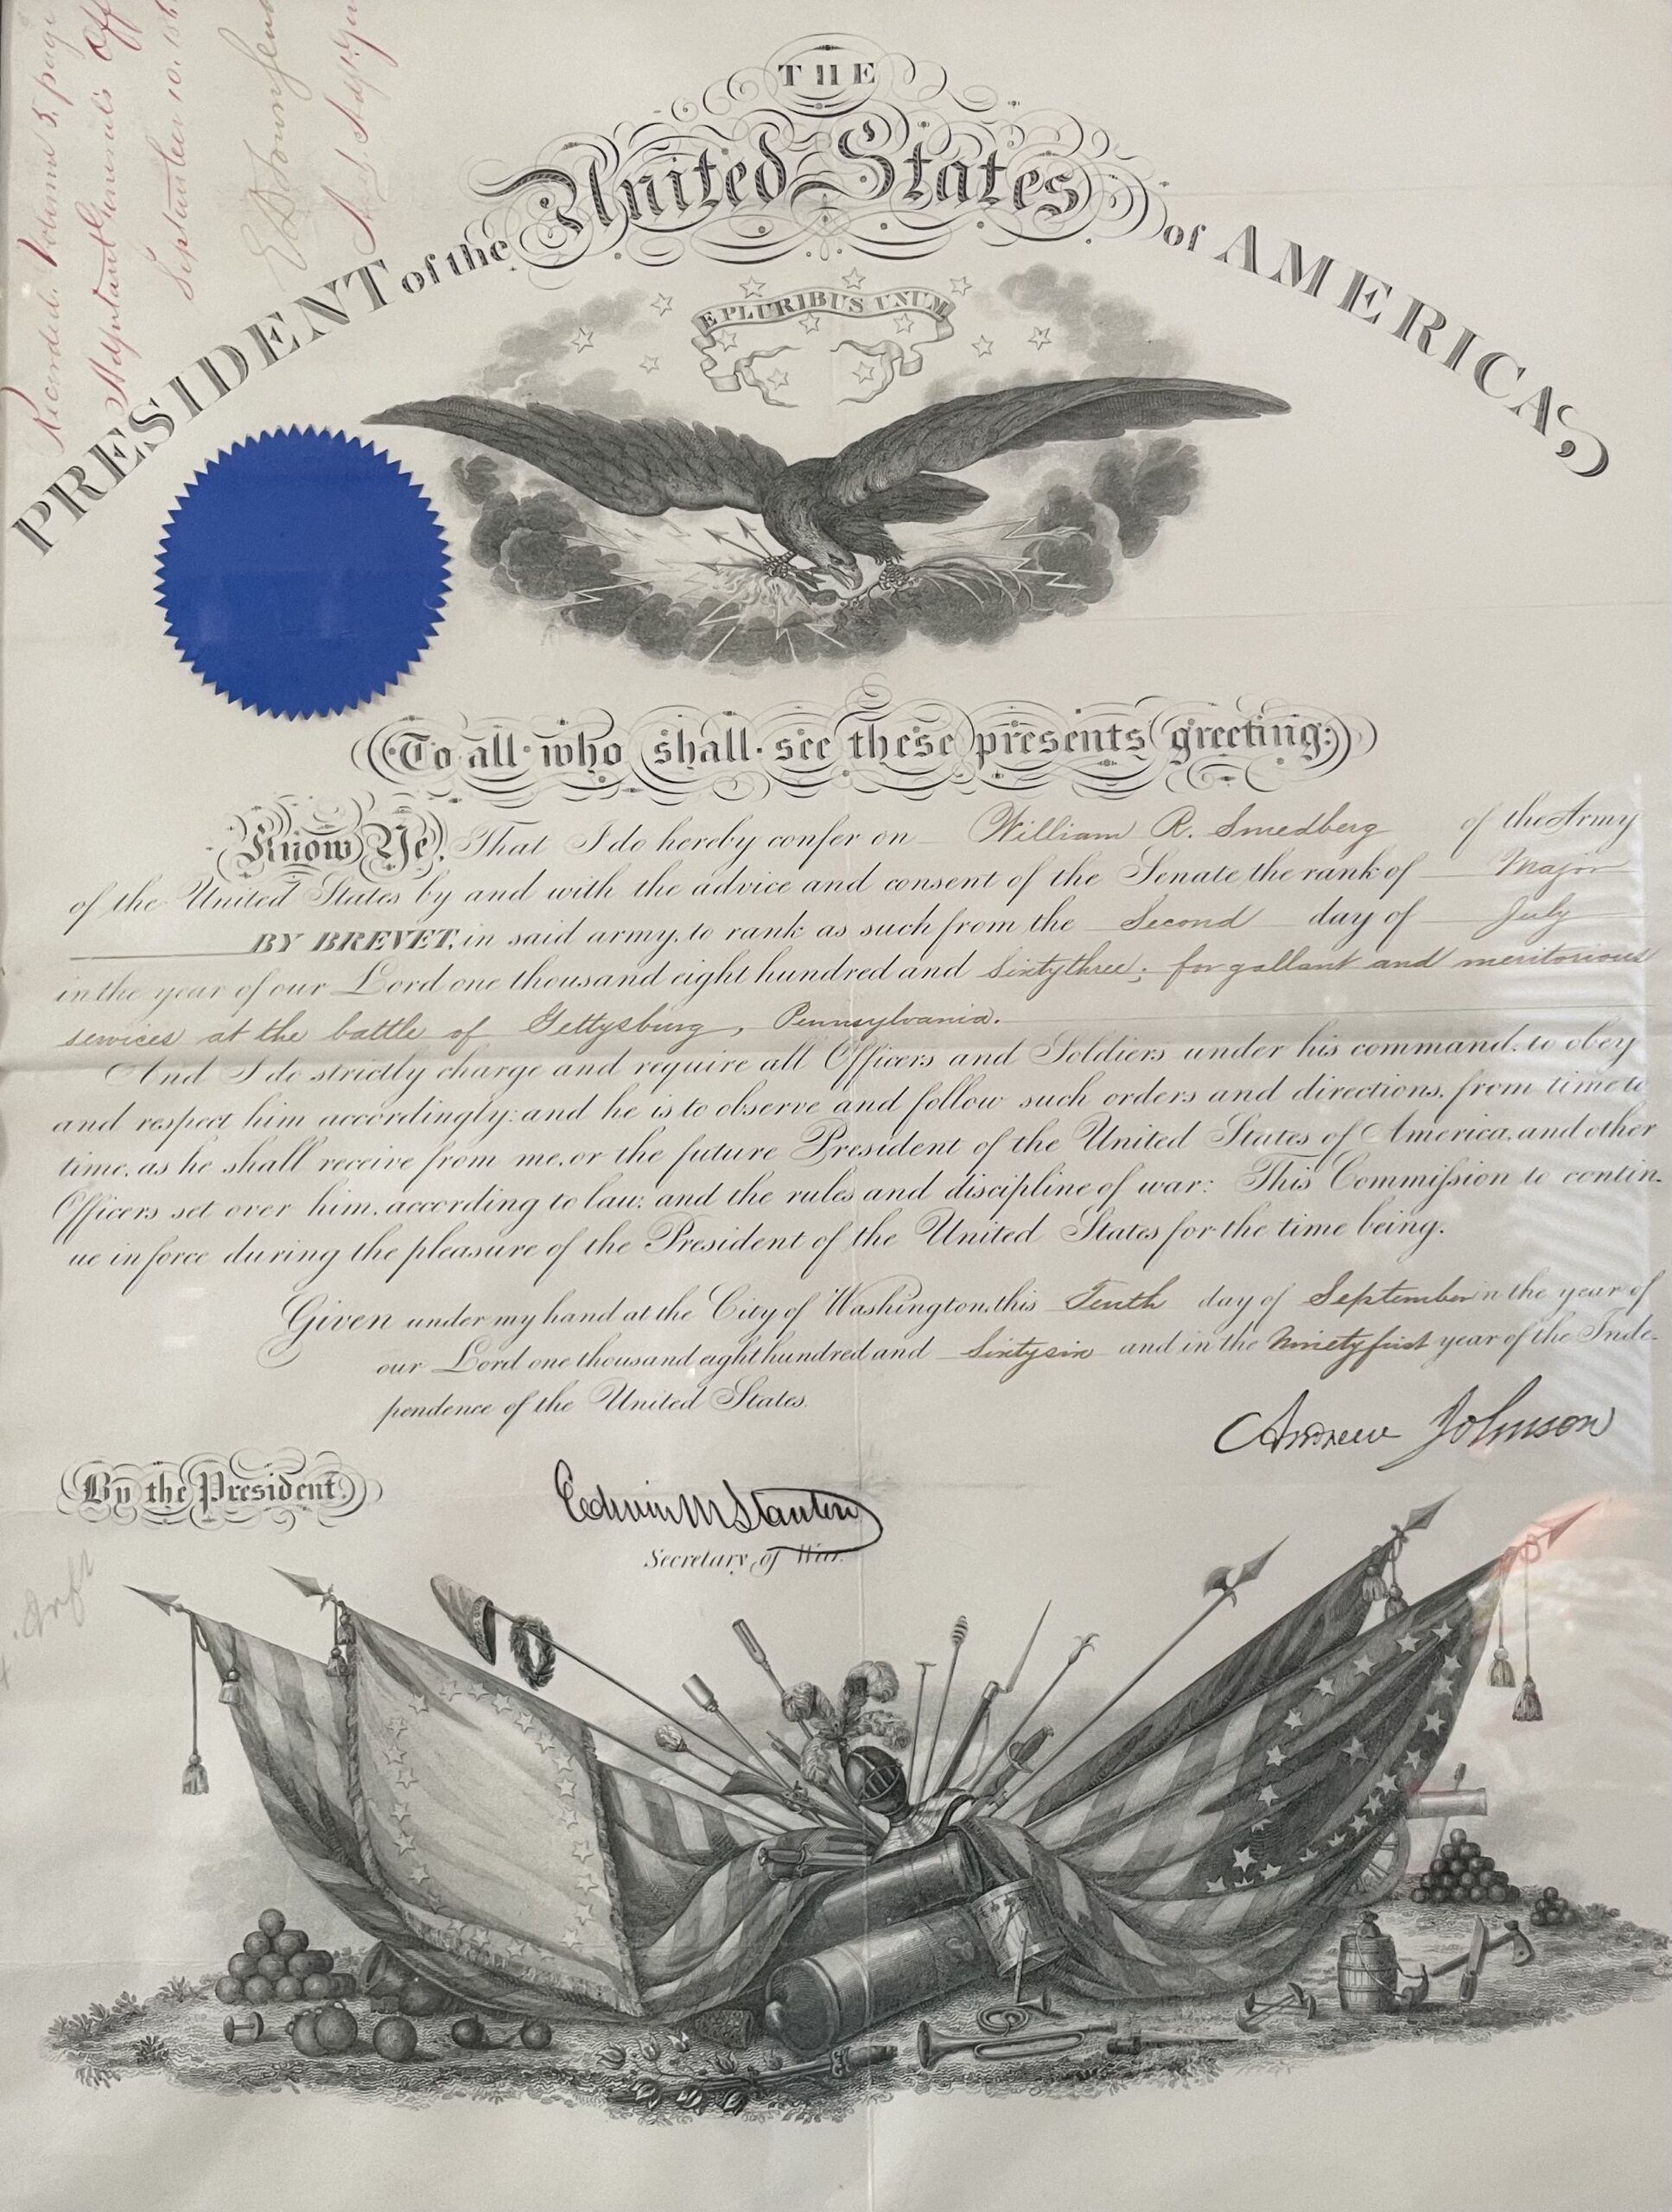 Recorded, Volume 5, page
Adjutant General's Off
September 10. 186
E D Townsend
Asst. Adjt. Gen
THE
PRESIDENT of the United States of AMERICA,
E PLURIBUS UNUM
To all who shall see these presents greeting:
Know Ye, That I do hereby confer on William R. Smedberg of the Army
of the United States by and with the advice and consent of the Senate the rank of Major
BY BREVET, in said army, to rank as such from the Second day of July
in the year of our Lord one thousand eight hundred and Sixtythree; for gallant and meritorious
services at the battle of Gettysburg, Pennsylvania.
And I do strictly charge and require all Officers and Soldiers under his command, to obey
and respect him accordingly: and he is to observe and follow such orders and directions, from time to
time, as he shall receive from me, or the future President of the United States of America, and other
Officers set over him, according to law: and the rules and discipline of war: This Commission to contin-
ue in force during the pleasure of the President of the United States for the time being.
Given under my hand at the City of Washington, this Tenth day of September in the year of
our Lord one thousand eight hundred and Sixtysix and in the Ninetyfirst year of the Inde-
pendence of the United States.
Andrew Johnson
By the President.
Edwin M Stanton
Secretary of War.